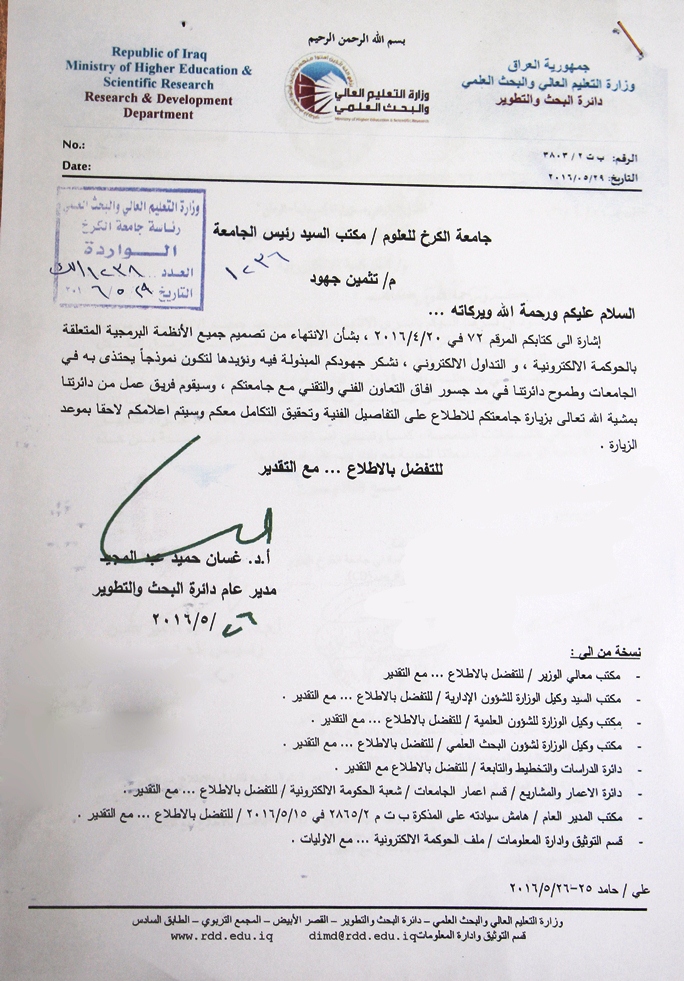 بسم الله الرحمن الرحيم
Republic of Iraq
Ministry of Higher Education &
Scientific Research
Research & Development
Department
وزارة التعليم العالي
والبحث العلمي
Ministry of Higher Education & Scientific Research
جمهورية العراق
وزارة التعليم العالي والبحث العلمي
دائرة البحث والتطوير
No.:
Date:
الرقم: ب ت ٢ / ٣٨٠٣
التاريخ: ٢٠١٦/٠٥/٢٩
وزارة التعليم العالي والبحث العلمي
رئاسة جامعة الكرخ
الـــواردة
العدد
التاريخ ٢٩/٥/٢٠١٦
جامعة الكرخ للعلوم / مكتب السيد رئيس الجامعة
م/ تثمين جهود
السلام عليكم ورحمة الله وبركاته ...
إشارة الى كتابكم المرقم ٧٢ في ٢٠١٦/٤/٢٠ ، بشأن الانتهاء من تصميم جميع الأنظمة البرمجية المتعلقة
بالحوكمة الالكترونية ، و التداول الالكتروني ، نشكر جهودكم المبذولة فيه ونؤيدها لتكون نموذجاً يحتذى به في
الجامعات وطموح دائرتنا في مد جسور افاق التعاون الفني والتقني مـع جامعتكم ، وسيقوم فريق عمل من دائرتنا
بمشية الله تعالى بزيارة جامعتكم للاطلاع على التفاصيل الفنية وتحقيق التكامل معكم وسيتم اعلامكم لاحقا بموعد
الزيارة .
للتفضل بالاطلاع ... مع التقدير
أ.د. غسان حميد عبد المجيد
مدير عام دائرة البحث والتطوير
٢٦/٢٠١٦/٥
نسخة من الى :
- مكتب معالي الوزير / للتفضل بالاطلاع ... مع التقدير
- مكتب السيد وكيل الوزارة للشؤون الإدارية / للتفضل بالاطلاع ... مع التقدير .
- مكتب وكيل الوزارة للشؤون العلمية / للتفضل بالاطلاع ... مع التقدير .
- مكتب وكيل الوزارة لشؤون البحث العلمي / للتفضل بالاطلاع ... مع التقدير .
- دائرة الدراسات والتخطيط والتابعة / للتفضل بالاطلاع مع التقدير .
- دائرة الاعمار والمشاريع / قسم اعمار الجامعات / شعبة الحكومة الالكترونية / للتفضل بالاطلاع ... مع التقدير .
- مكتب المدير العام / هامش سيادته على المذكرة ب ت م ٢٨٦٥/٢ في ٢٠١٦/٥/١٥ / للتفضل بالاطلاع ... مع التقدير .
- قسم التوثيق وادارة المعلومات / ملف الحوكمة الالكترونية ... مع الاوليات .
علي / حامد ٢٥-٢٠١٦/٥/٢٦
وزارة التعليم العالي والبحث العلمي – دائرة البحث والتطوير – القصر الأبيض – المجمع التربوي – الطابق السادس
قسم التوثيق وادارة المعلومات dimd@rdd.edu.iq www.rdd.edu.iq